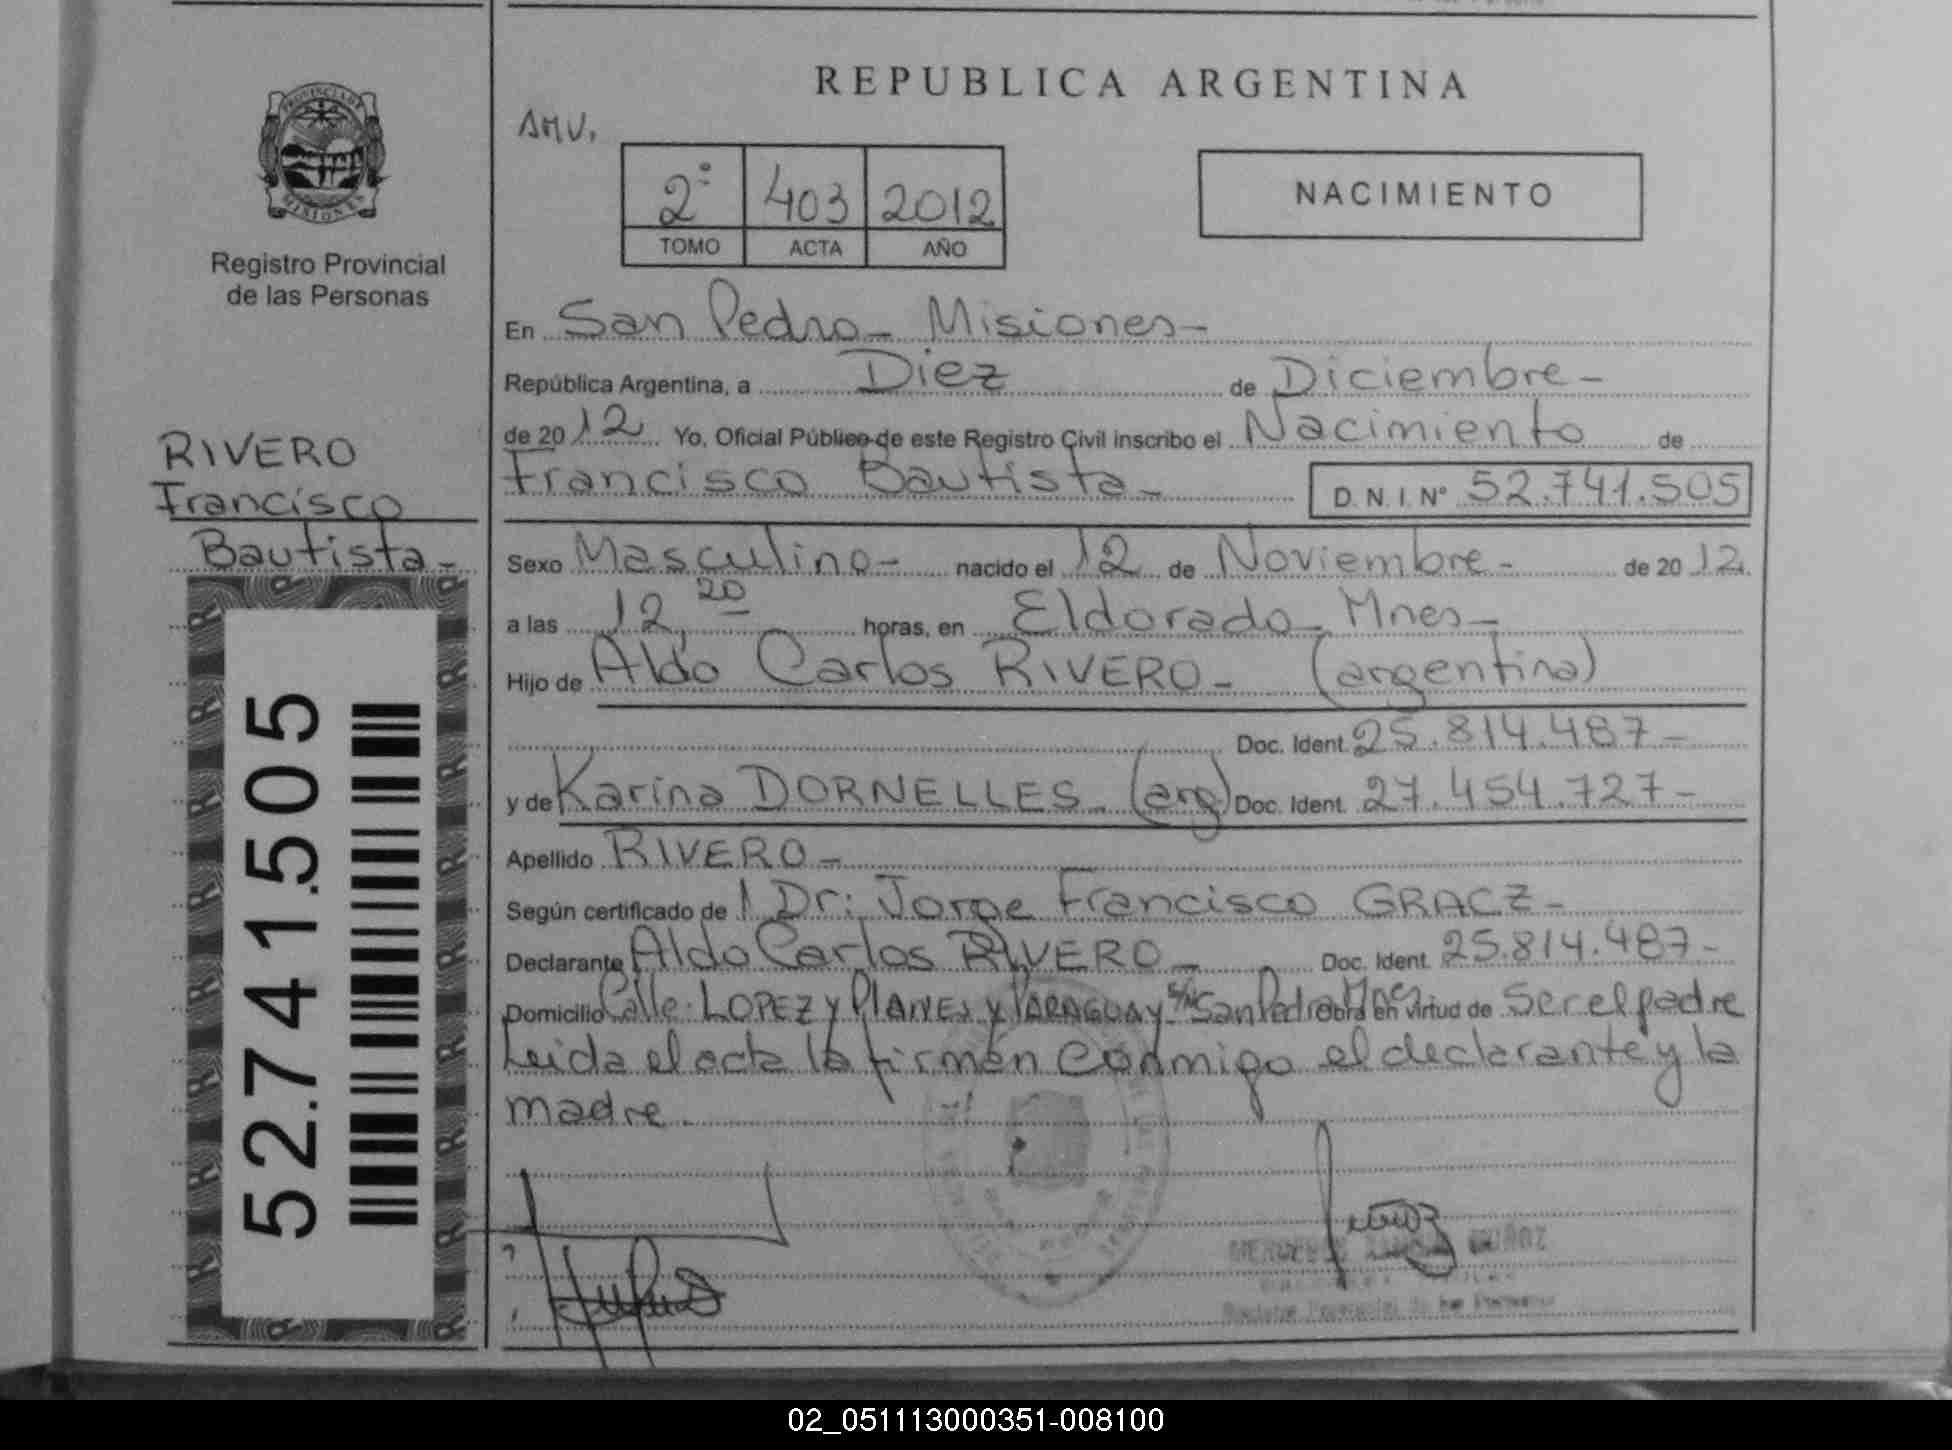 REPUBLICA ARGENTINA
AMV.
2º 403 2012
TOMO ACTA AÑO
NACIMIENTO
PROVINCIA DE
MISIONES
Registro Provincial
de las Personas
RIVERO
Francisco
Bautista-
52.741.505
En San Pedro- Misiones-
República Argentina, a Diez de Diciembre-
de 2012 Yo, Oficial Público de este Registro Civil inscribo el Nacimiento de
Francisco Bautista- D.N.I. Nº 52.741.505
Sexo Masculino- nacido el 12 de Noviembre- de 2012.
a las 12 20 horas, en Eldorado- Mnes-
Hijo de Aldo Carlos RIVERO- (argentina)
Doc. Ident. 25.814.487-
y de Karina DORNELLES- (arg) Doc. Ident. 27.454.727-
Apellido RIVERO-
Según certificado de Dr: Jorge Francisco GRACZ-
Declarante Aldo Carlos RIVERO- Doc. Ident. 25.814.487-
Domicilio Calle: LOPEZ y PLANES y PARAGUAY S/N San Pedro Mnes Obra en virtud de Ser el padre
Leida el acta la firman conmigo el declarante y la
madre.
MUÑOZ
Registro Provincial de las Personas
02_051113000351-008100